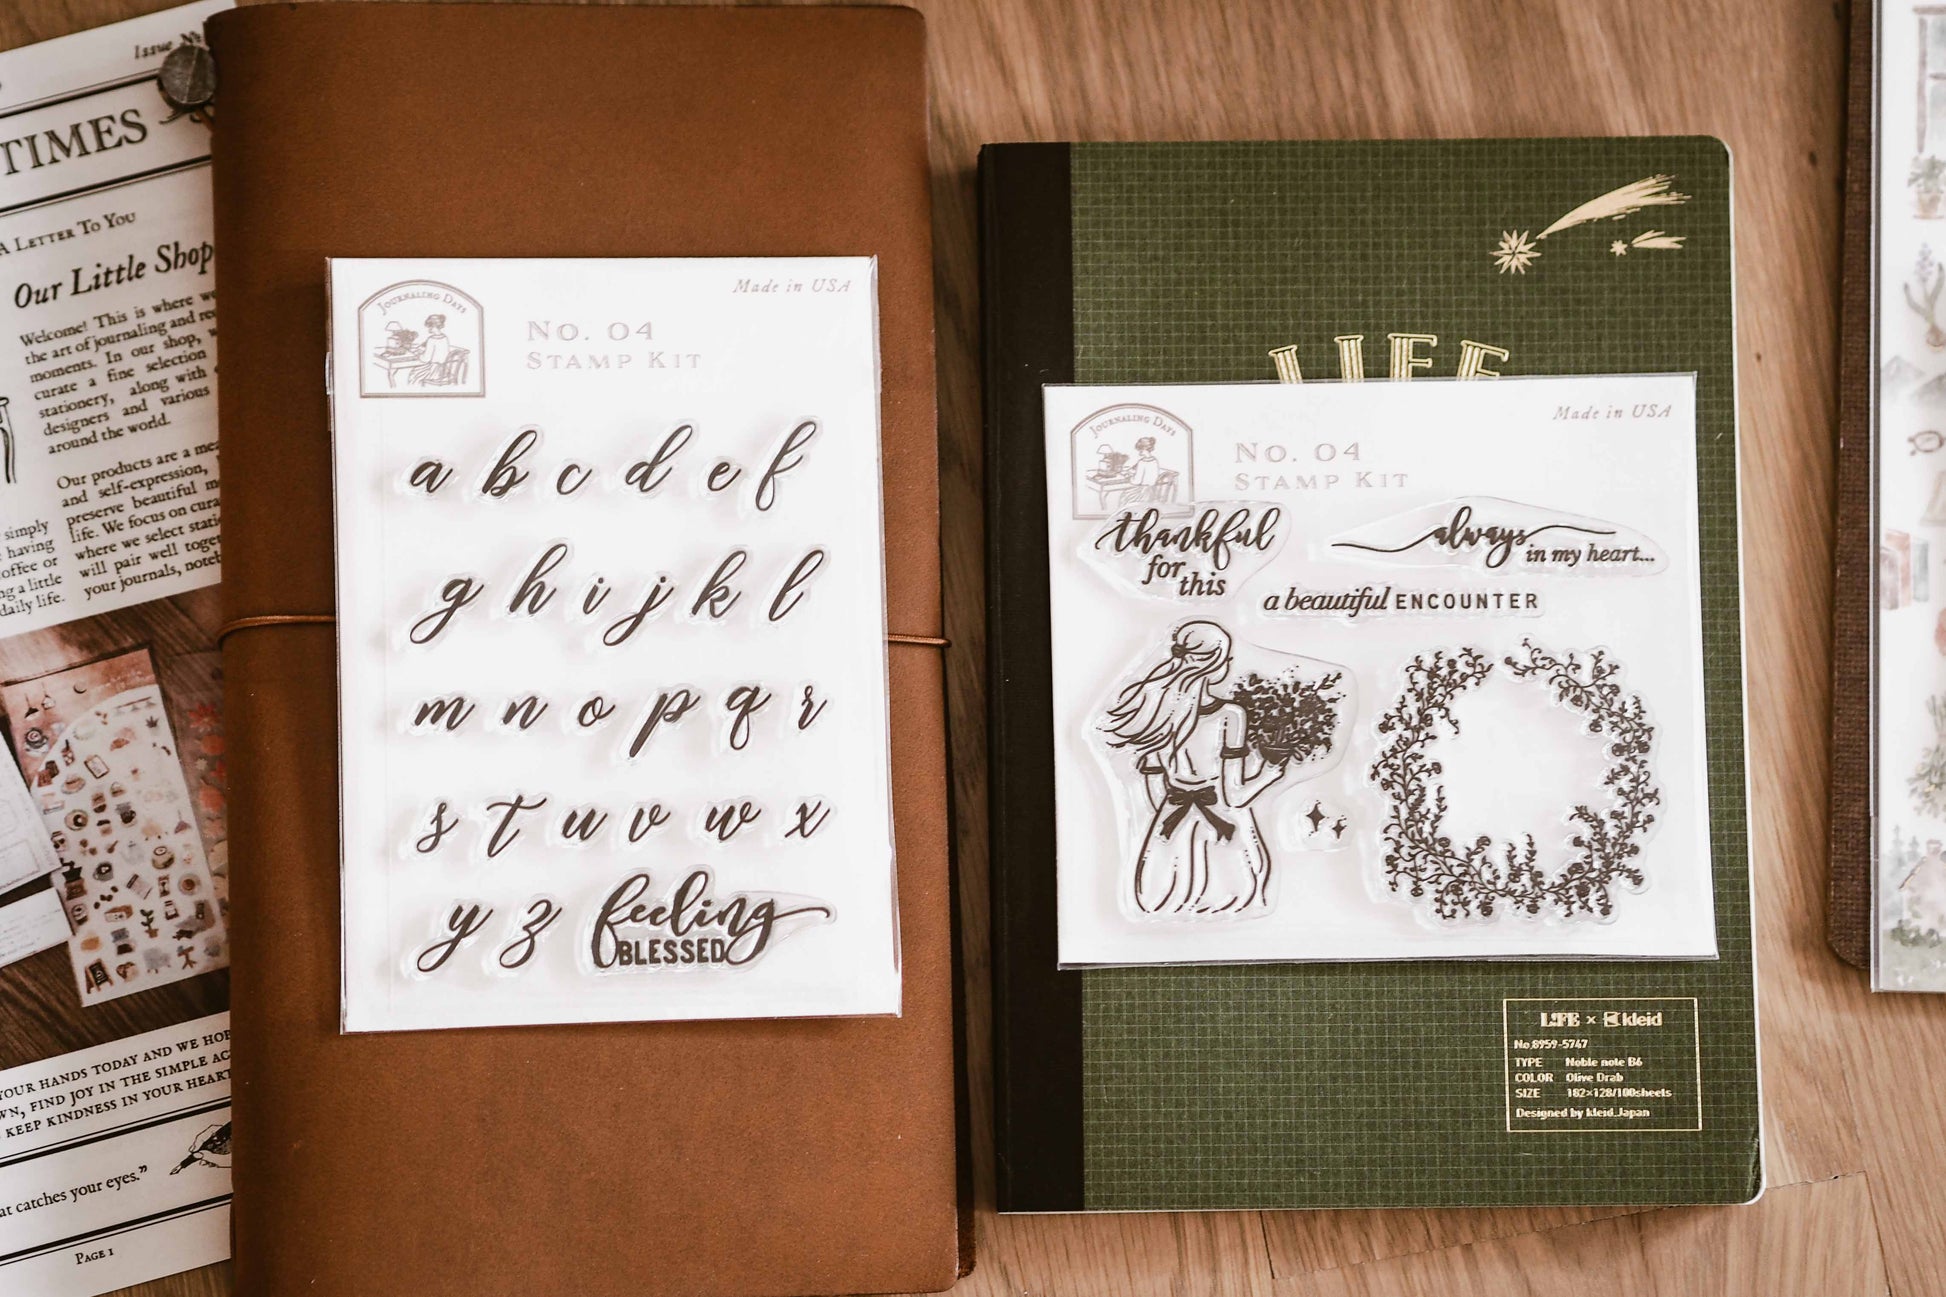 Issue
TIMES
A LETTER TO YOU
Our Little Shop
Welcome! This is where we
the art of journaling and
moments. In our shop,
curate a fine selection
stationery, along with
designers and various
around the world.
Our products are a
and self-expression,
preserve beautiful
life. We focus on
where we select
will pair well
your journals,
simply
having
coffee or
a little
daily life.
YOUR HANDS TODAY AND WE
FIND JOY IN THE SIMPLE
KEEP KINDNESS IN YOUR HEART
catches your eyes."
PAGE 1
JOURNALING DAYS
Made in USA
NO. 04
STAMP KIT
a b c d e f
g h i j k l
m n o p q r
s t u v w x
y z feeling
BLESSED
LIFE
JOURNALING DAYS
Made in USA
NO. 04
STAMP KIT
thankful
for
this
always
in my heart...
a beautiful ENCOUNTER
LIFE × kleid
No.8959-5747
TYPE Noble note B6
COLOR Olive Drab
SIZE 182×128/100sheets
Designed by kleid.Japan